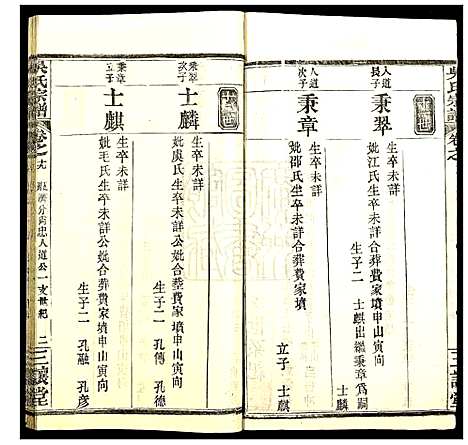 吳氏宗譜
卷之
三讓堂
人道長子
秉翠
生卒未詳
妣江氏生卒未詳合葬費家墳申山寅向
生子二 士麒出繼秉章爲嗣
士麟
人道次子
秉章
生卒未詳
妣邵氏生卒未詳合葬費家墳
立子 士麒
秉翠次子
士麟
生卒未詳
妣虞氏生卒未詳公妣合塟費家墳申山寅向
生子二 孔傳 孔德
秉章
士麒
生卒未詳
妣毛氏生卒未詳公妣合葬費家墳申山寅向
生子二 孔融 孔彥
吳氏宗譜
卷之十九
分尚忠人道公一支世紀
二
三讓堂